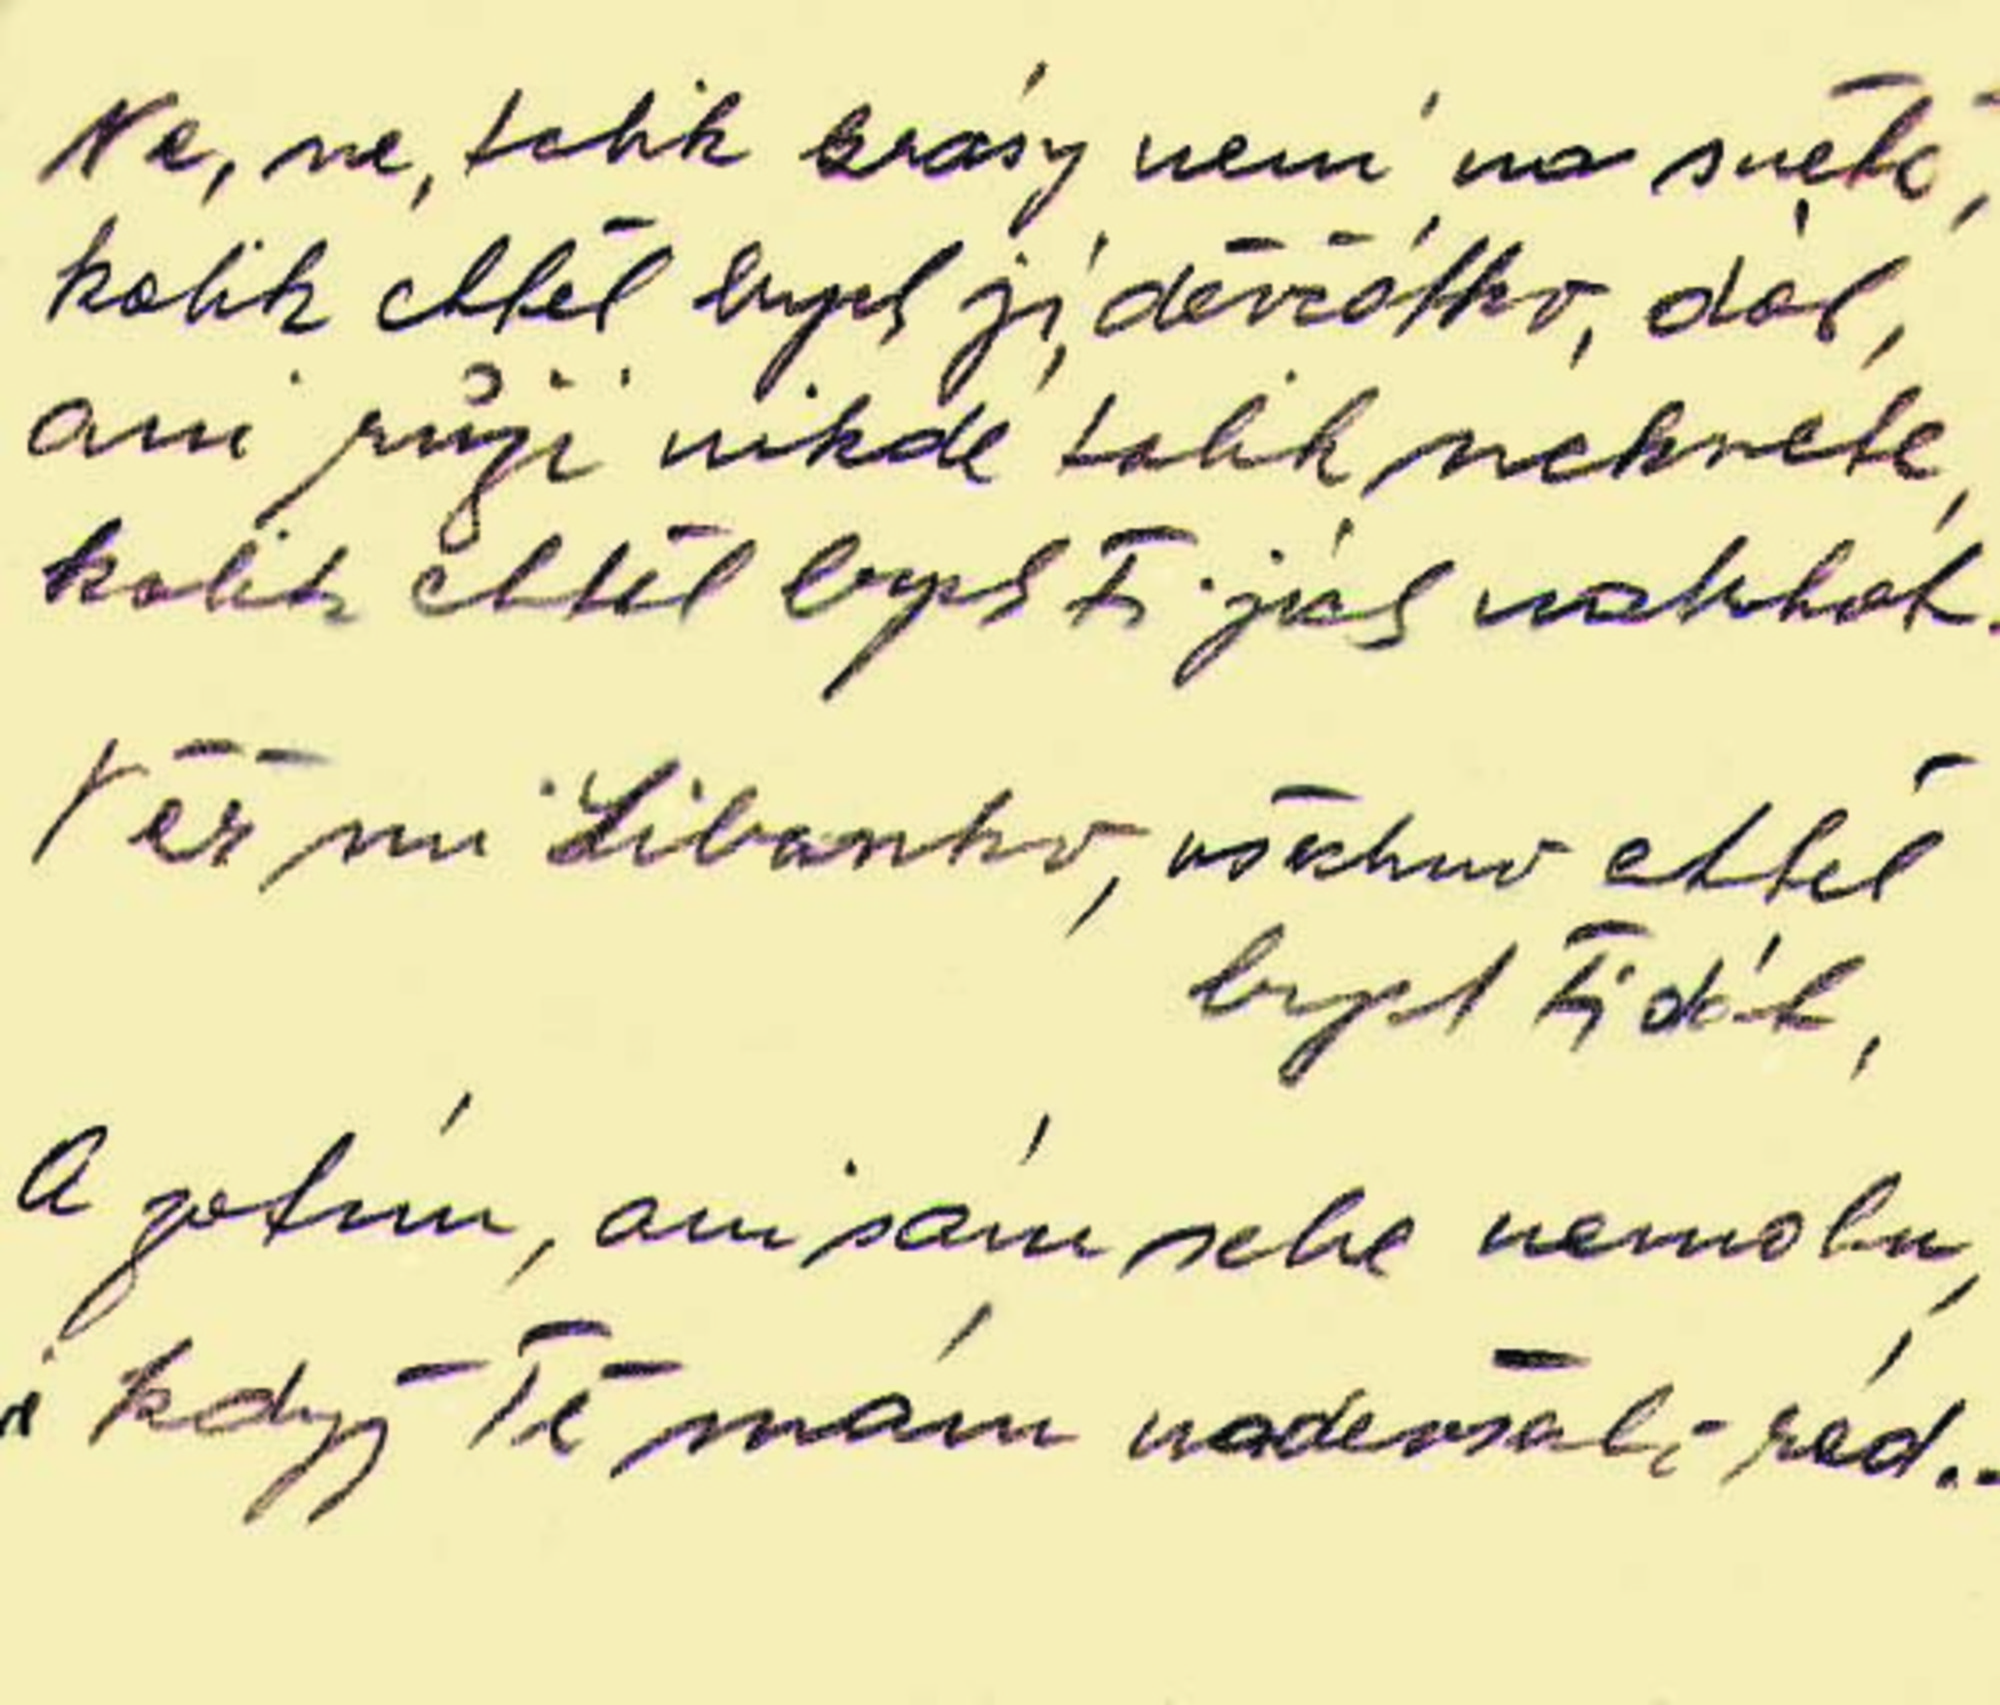 Ne, ne, tolik krásy není na světě,
kolik chtěl bych jí, děvčátko, dát,
ani růží nikde tolik nekvete,
kolik chtěl bych Ti jich natrhat.
Věř mi Libanko, všechno chtěl
bych Ti dát,
A zatím, ani sám sebe nemohu,
i když Tě mám nadevšecko rád..